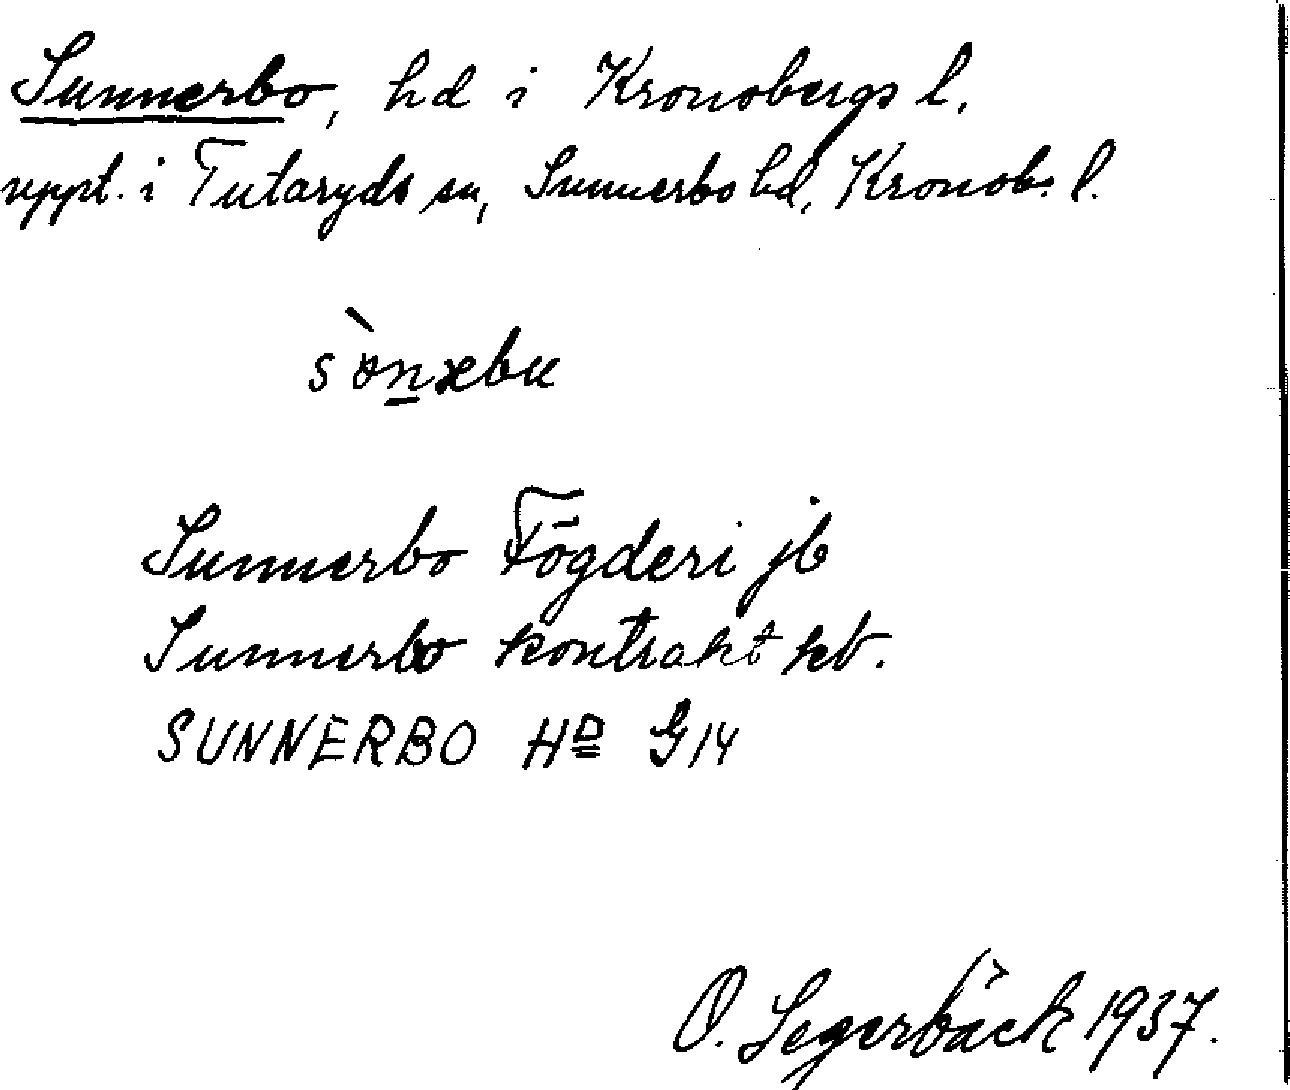 Sunnerbo, hd i Kronobergs l.
uppt. i Tutaryds sn, Sunnerbo hd, Kronobs l.
Sunnerbo Fögderi jb
Sunnerbo kontrakt kb.
SUNNERBO HD G 14
O. Segerbäck 1937.